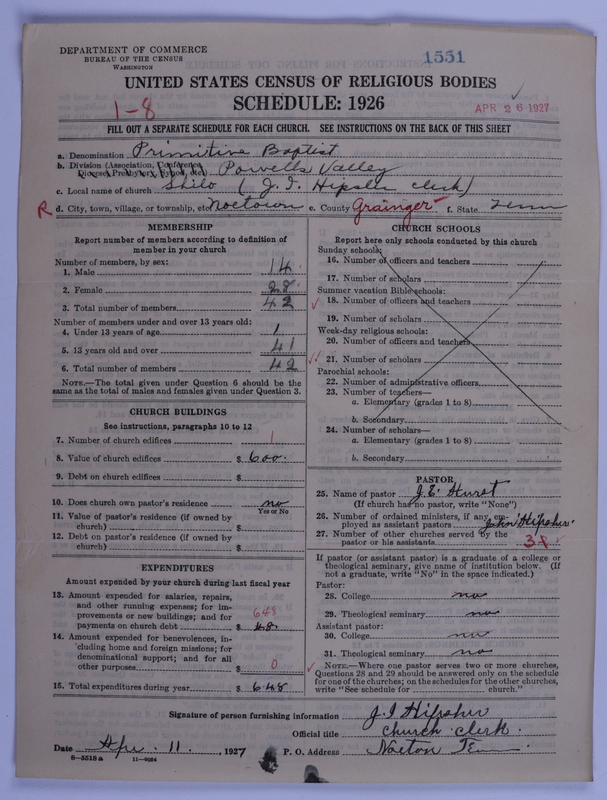 DEPARTMENT OF COMMERCE
BUREAU OF THE CENSUS
WASHINGTON
1551
UNITED STATES CENSUS OF RELIGIOUS BODIES
SCHEDULE: 1926
1-8
APR 26 1927
FILL OUT A SEPARATE SCHEDULE FOR EACH CHURCH. SEE INSTRUCTIONS ON THE BACK OF THIS SHEET
a. Denomination Primitive Baptist
b. Division (Association, Conference, Diocese, Presbytery, Synod, etc.) Powells Valley
c. Local name of church Shilo (J. I. Hipsher clerk)
R d. City, town, village, or township, etc. Noetown e. County Grainger f. State Tenn
MEMBERSHIP
Report number of members according to definition of
member in your church
Number of members, by sex:
1. Male 14
2. Female 28
3. Total number of members 42
Number of members under and over 13 years old:
4. Under 13 years of age 1
5. 13 years old and over 41
6. Total number of members 42
NOTE.—The total given under Question 6 should be the
same as the total of males and females given under Question 3.
CHURCH BUILDINGS
See instructions, paragraphs 10 to 12
7. Number of church edifices 1
8. Value of church edifices $ 600.
9. Debt on church edifices $
10. Does church own pastor's residence no
Yes or No
11. Value of pastor's residence (if owned by
church) $
12. Debt on pastor's residence (if owned by
church) $
EXPENDITURES
Amount expended by your church during last fiscal year
13. Amount expended for salaries, repairs,
and other running expenses; for im-
provements or new buildings; and for
payments on church debt $ 648
48.
14. Amount expended for benevolences, in-
cluding home and foreign missions; for
denominational support; and for all
other purposes $ 0
15. Total expenditures during year $ 648
CHURCH SCHOOLS
Report here only schools conducted by this church
Sunday schools:
16. Number of officers and teachers
17. Number of scholars
Summer vacation Bible schools:
18. Number of officers and teachers
19. Number of scholars
Week-day religious schools:
20. Number of officers and teachers
21. Number of scholars
Parochial schools:
22. Number of administrative officers
23. Number of teachers—
a. Elementary (grades 1 to 8)
b. Secondary
24. Number of scholars—
a. Elementary (grades 1 to 8)
b. Secondary
PASTOR
25. Name of pastor J. E. Hurst
(If church has no pastor, write "None")
26. Number of ordained ministers, if any, em-
ployed as assistant pastors John Hipsher
27. Number of other churches served by the
pastor or his assistants 3
If pastor (or assistant pastor) is a graduate of a college or
theological seminary, give name of institution below. (If
not a graduate, write "No" in the space indicated.)
Pastor:
28. College no
29. Theological seminary no
Assistant pastor:
30. College no
31. Theological seminary no
NOTE.—Where one pastor serves two or more churches,
Questions 28 and 29 should be answered only on the schedule
for one of the churches; on the schedules for the other churches,
write "See schedule for church."
Signature of person furnishing information J. I. Hipsher
Official title church clerk.
Date Apr. 11, 1927 P. O. Address Noeton Tenn
8—5518 a 11—9024